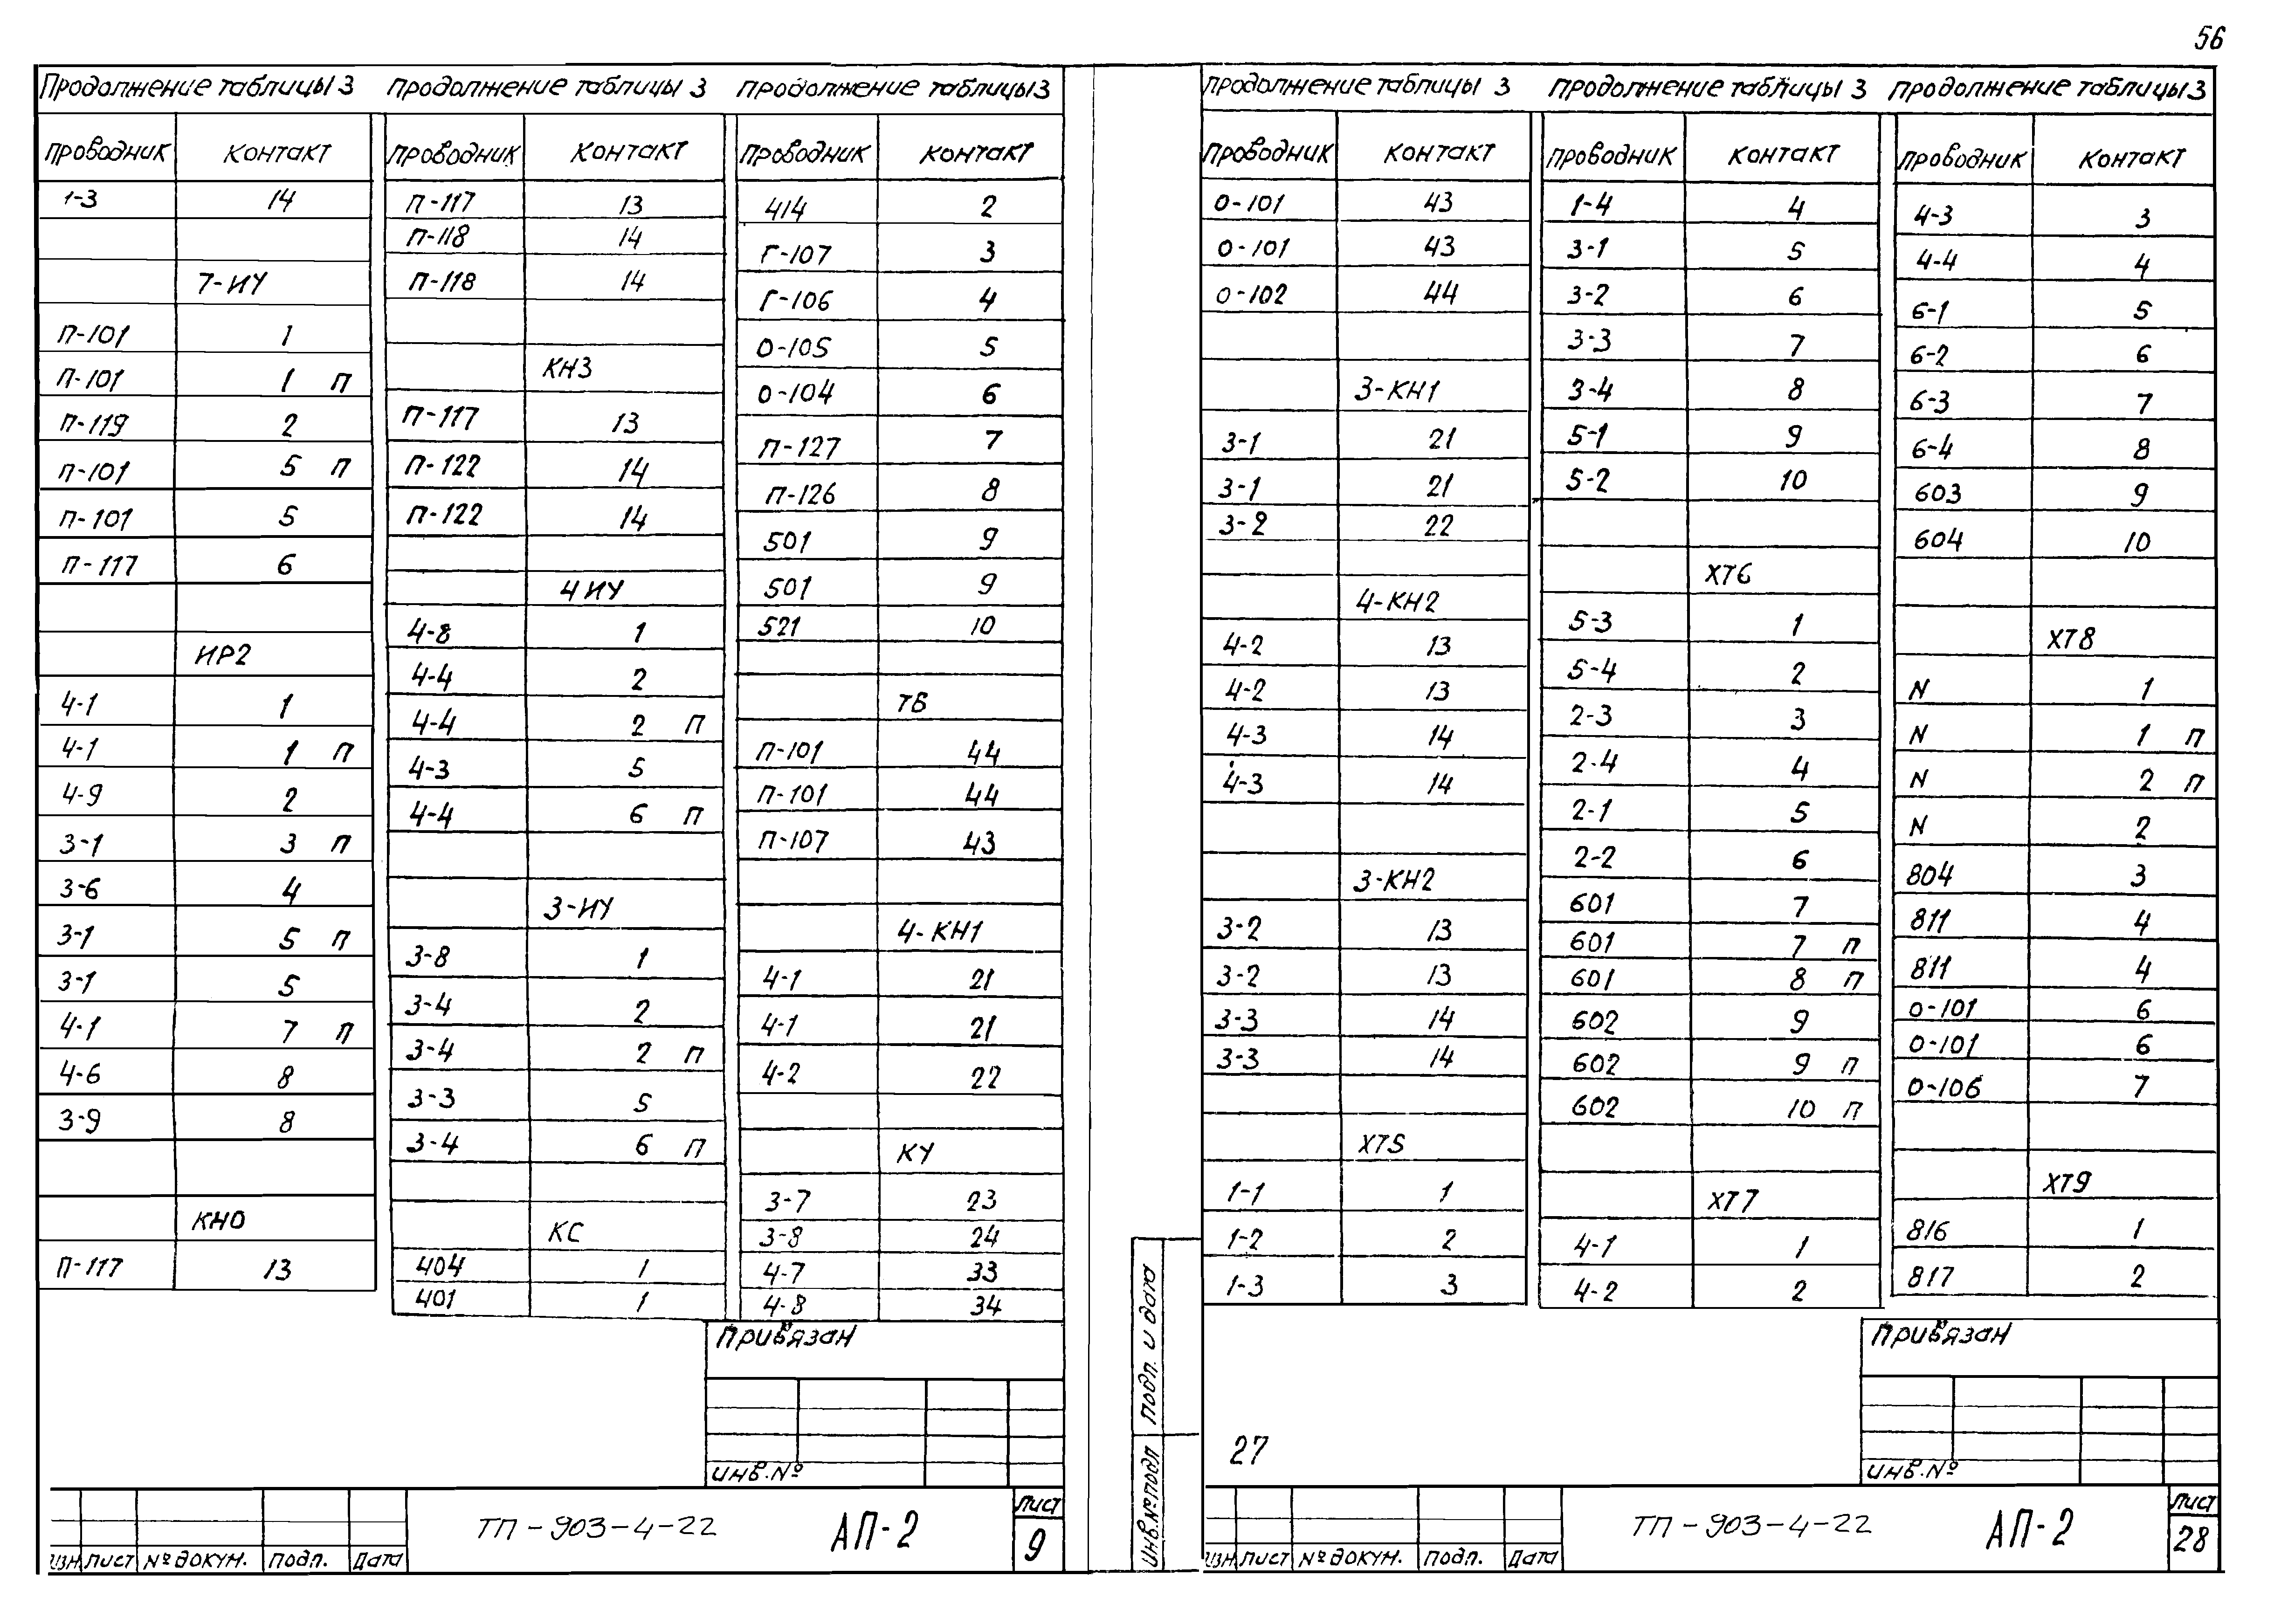 56
Продолжение таблицы 3
Проводник Контакт
1-3 14
7-ИУ
П-101 1
П-101 1 П
П-119 2
П-101 5 П
П-101 5
П-117 6
ИР2
4-1 1
4-1 1 П
4-9 2
3-1 3 П
3-6 4
3-1 5 П
3-1 5
4-1 7 П
4-6 8
3-9 8
КНО
П-117 13
Продолжение таблицы 3
Проводник Контакт
П-117 13
П-118 14
П-118 14
КН3
П-117 13
П-122 14
П-122 14
4ИУ
4-8 1
4-4 2
4-4 2 П
4-3 5
4-4 6 П
3-ИУ
3-8 1
3-4 2
3-4 2 П
3-3 5
3-4 6 П
КС
404 1
401 1
Продолжение таблицы 3
Проводник Контакт
414 2
Г-107 3
Г-106 4
О-105 5
О-104 6
П-127 7
П-126 8
501 9
501 9
521 10
ТБ
П-101 44
П-101 44
П-107 43
4-КН1
4-1 21
4-1 21
4-2 22
КУ
3-7 23
3-8 24
4-7 33
4-8 34
Привязан
Инв.№
Изм Лист № докум. Подп. Дата
ТП-903-4-22
АП-2
Лист
9
Продолжение таблицы 3
Проводник Контакт
О-101 43
О-101 43
О-102 44
3-КН1
3-1 21
3-1 21
3-2 22
4-КН2
4-2 13
4-2 13
4-3 14
4-3 14
3-КН2
3-2 13
3-2 13
3-3 14
3-3 14
ХТ5
1-1 1
1-2 2
1-3 3
Продолжение таблицы 3
Проводник Контакт
1-4 4
3-1 5
3-2 6
3-3 7
3-4 8
5-1 9
5-2 10
ХТ6
5-3 1
5-4 2
2-3 3
2-4 4
2-1 5
2-2 6
601 7
601 7 П
601 8 П
602 9
602 9 П
602 10 П
ХТ7
4-1 1
4-2 2
Продолжение таблицы 3
Проводник Контакт
4-3 3
4-4 4
6-1 5
6-2 6
6-3 7
6-4 8
603 9
604 10
ХТ8
N 1
N 1 П
N 2 П
N 2
804 3
811 4
811 4
О-101 6
О-101 6
О-106 7
ХТ9
816 1
817 2
Подп. и дата
Инв.№ подл
27
Привязан
Инв.№
Изм Лист № докум. Подп. Дата
ТП-903-4-22
АП-2
Лист
28